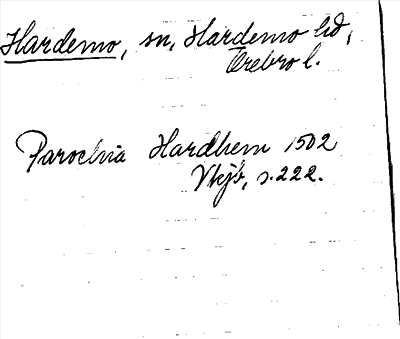 Hardemo, sn, Hardemo hd,
Örebro l.
Parochia Hardhem 1502
Vkjb, s. 222.